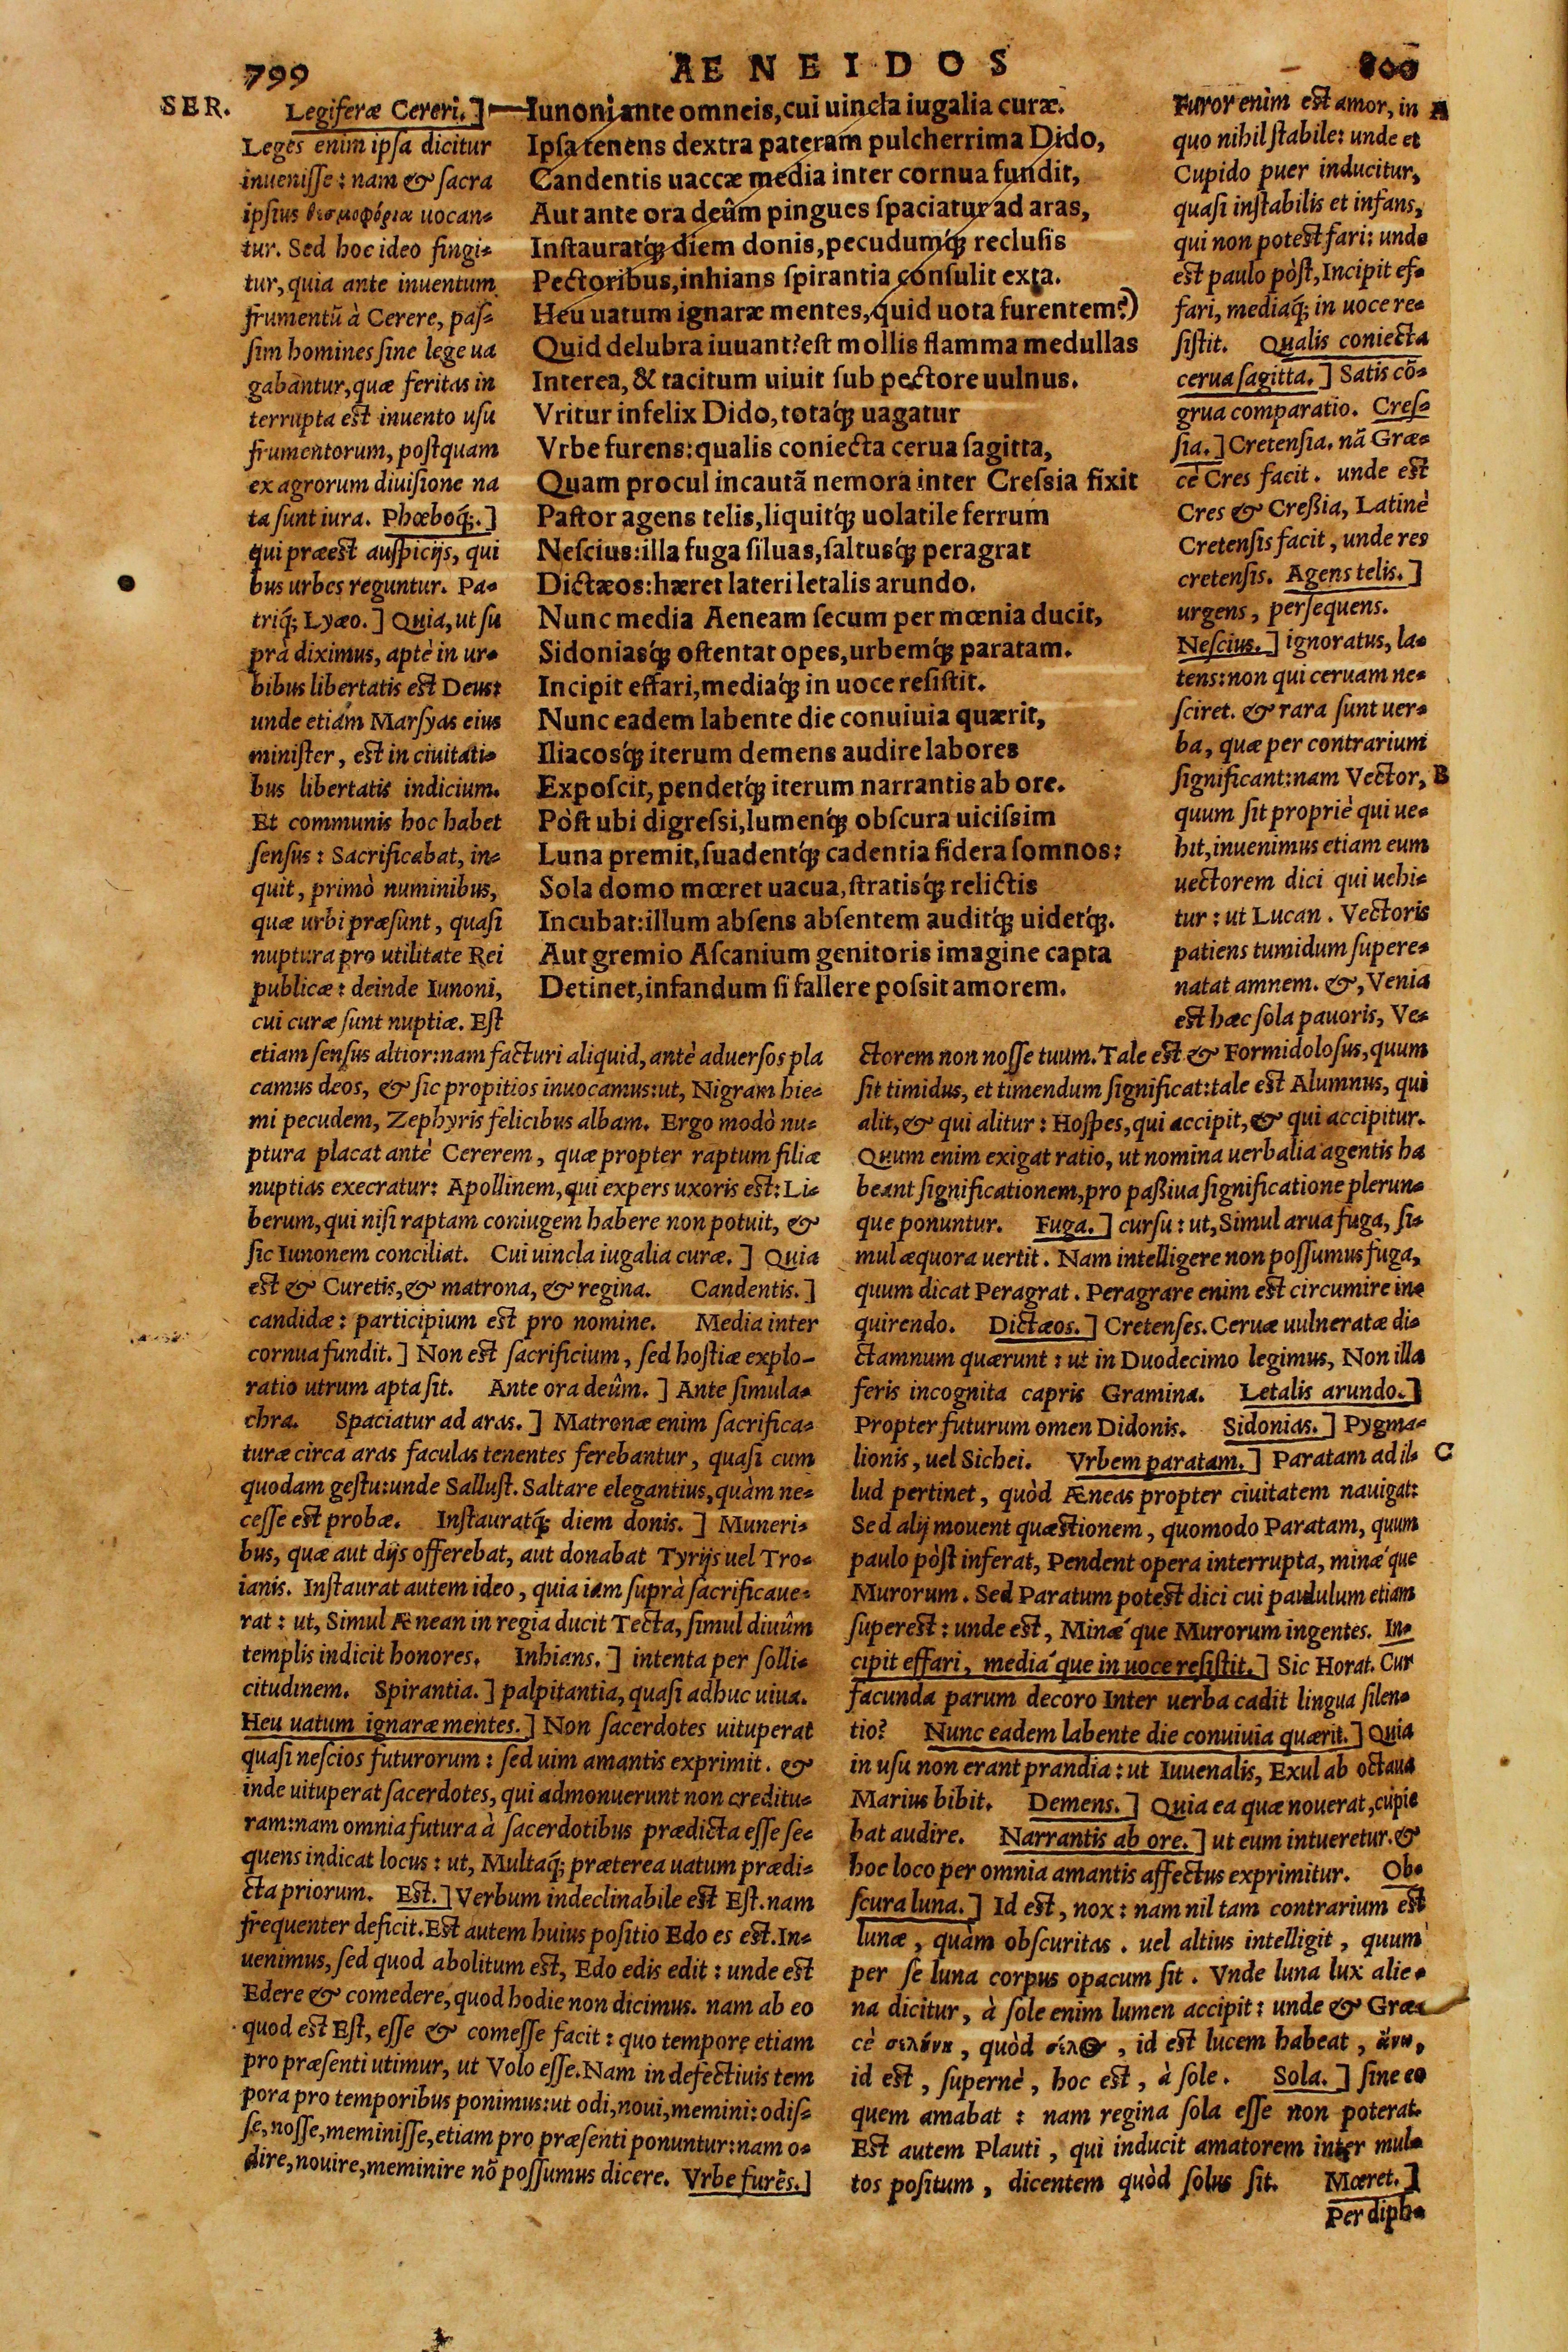 799
AENEIDOS
800
SER.
Legiferæ Cereri.]
Leges enim ipſa dicitur
inueniſſe: nam & ſacra
ipſius θεσμοφόρια uocan-
tur. Sed hoc ideo fingi-
tur, quia ante inuentum
frumentũ à Cerere, paſ-
ſim homines ſine lege ua
gabantur, quæ feritas in
terrupta est inuento uſu
frumentorum, poſtquam
ex agrorum diuiſione na
ta ſunt iura. Phœboq́;.]
qui præest auſpicijs, qui
bus urbes reguntur. Pa-
triq́; Lyæo.] Quia, ut ſu
prà diximus, aptè in ur-
bibus libertatis est Deus:
unde etiam Marſyas eius
miniſter, est in ciuitati-
bus libertatis indicium.
Et communis hoc habet
ſenſus: Sacrificabat, in-
quit, primò numinibus,
quæ urbi præſunt, quaſi
nuptura pro utilitate Rei
publicæ: deinde Iunoni,
cui curæ ſunt nuptiæ. Eſt
Iunoni ante omneis, cui uincla iugalia curæ.
Ipſa tenens dextra pateram pulcherrima Dido,
Candentis uaccæ media inter cornua fundit,
Aut ante ora deûm pingues ſpaciatur ad aras,
Inſtauratq́; diem donis, pecudumq́; recluſis
Pectoribus, inhians ſpirantia conſulit exta.
Heu uatum ignaræ mentes, quid uota furentem?)
Quid delubra iuuant? eſt mollis flamma medullas
Interea, & tacitum uiuit ſub pectore uulnus.
Vritur infelix Dido, totaq́; uagatur
Vrbe furens: qualis coniecta cerua ſagitta,
Quam procul incautã nemora inter Creſsia fixit
Paſtor agens telis, liquitq́; uolatile ferrum
Neſcius: illa fuga ſiluas, ſaltusq́; peragrat
Dictæos: hæret lateri letalis arundo.
Nunc media Aeneam ſecum per mœnia ducit,
Sidoniasq́; oſtentat opes, urbemq́; paratam.
Incipit effari, mediaq́; in uoce reſiſtit.
Nunc eadem labente die conuiuia quærit,
Iliacosq́; iterum demens audire labores
Expoſcit, pendetq́; iterum narrantis ab ore.
Pòſt ubi digreſsi, lumenq́; obſcura uiciſsim
Luna premit, ſuadentq́; cadentia ſidera ſomnos:
Sola domo mœret uacua, ſtratisq́; relictis
Incubat: illum abſens abſentem auditq́; uidetq́;.
Aut gremio Aſcanium genitoris imagine capta
Detinet, infandum ſi fallere poſsit amorem.
Furor enim est amor, in A
quo nihil ſtabile: unde et
Cupido puer inducitur,
quaſi inſtabilis et infans,
qui non potest fari: unde
est paulo pòſt, Incipit ef-
fari, mediaq́; in uoce re-
ſiſtit. Qualis coniecta
cerua ſagitta.] Satis cõ-
grua comparatio. Creſ-
ſia.] Cretenſia. nã Græ-
cè Cres facit. unde est
Cres & Creßia, Latinè
Cretenſis facit, unde res
cretenſis. Agens telis.]
urgens, perſequens.
Neſcius.] ignoratus, la-
tens: non qui ceruam ne-
ſciret. & rara ſunt uer-
ba, quæ per contrarium
ſignificant: nam Vector, B
quum ſit propriè qui ue-
hit, inuenimus etiam eum
uectorem dici qui uehi-
tur: ut Lucan. Vectoris
patiens tumidum ſupere-
natat amnem. &, Venia
est hæc ſola pauoris, Ve-
etiam ſenſus altior: nam facturi aliquid, antè aduerſos pla
camus deos, & ſic propitios inuocamus: ut, Nigram hie-
mi pecudem, Zephyris felicibus albam. Ergo modò nu-
ptura placat antè Cererem, quæ propter raptum filiæ
nuptias execratur: Apollinem, qui expers uxoris est: Li-
berum, qui niſi raptam coniugem habere non potuit, &
ſic Iunonem conciliat. Cui uincla iugalia curæ.] Quia
est & Curetis, & matrona, & regina. Candentis.]
candidæ: participium est pro nomine. Media inter
cornua fundit.] Non est ſacrificium, ſed hoſtiæ explo-
ratio utrum apta ſit. Ante ora deûm.] Ante ſimula-
chra. Spaciatur ad aras.] Matronæ enim ſacrifica-
turæ circa aras faculas tenentes ferebantur, quaſi cum
quodam geſtu: unde Salluſt. Saltare elegantius, quàm ne-
ceſſe est probæ. Inſtauratq́; diem donis.] Muneri-
bus, quæ aut dijs offerebat, aut donabat Tyrijs uel Tro-
ianis. Inſtaurat autem ideo, quia iam ſuprà ſacrificaue-
rat: ut, Simul Ænean in regia ducit Tecta, ſimul diuûm
templis indicit honores. Inhians.] intenta per ſolli-
citudinem. Spirantia.] palpitantia, quaſi adhuc uiua.
Heu uatum ignaræ mentes.] Non ſacerdotes uituperat
quaſi neſcios futurorum: ſed uim amantis exprimit. &
inde uituperat ſacerdotes, qui admonuerunt non creditu-
ram: nam omnia futura à ſacerdotibus prædicta eſſe ſe-
quens indicat locus: ut, Multaq́; præterea uatum prædi-
cta priorum. Est.] Verbum indeclinabile est Eſt. nam
frequenter deficit. Est autem huius poſitio Edo es est. In-
uenimus, ſed quod abolitum est, Edo edis edit: unde est
Edere & comedere, quod hodie non dicimus. nam ab eo
quod est Eſt, eſſe & comeſſe facit: quo tempore etiam
pro præſenti utimur, ut Volo eſſe. Nam in defectiuis tem
pora pro temporibus ponimus: ut odi, noui, memini: odiſ-
ſe, noſſe, meminiſſe, etiam pro præſenti ponuntur: nam o-
dire, nouire, meminire nõ poſſumus dicere. Vrbe furẽs.]
ctorem non noſſe tuum. Tale est & Formidoloſus, quum
ſit timidus, et timendum ſignificat: tale est Alumnus, qui
alit, & qui alitur: Hoſpes, qui accipit, & qui accipitur.
Quum enim exigat ratio, ut nomina uerbalia agentis ha
beant ſignificationem, pro paßiua ſignificatione plerun-
que ponuntur. Fuga.] curſu: ut, Simul arua fuga, ſi-
mul æquora uertit. Nam intelligere non poſſumus fuga,
quum dicat Peragrat. Peragrare enim est circumire in-
quirendo. Dictæos.] Cretenſes. Ceruæ uulneratæ di-
ctamnum quærunt: ut in Duodecimo legimus, Non illa
feris incognita capris Gramina. Letalis arundo.]
Propter futurum omen Didonis. Sidonias.] Pygma-
lionis, uel Sichei. Vrbem paratam.] Paratam ad il- C
lud pertinet, quòd Æneas propter ciuitatem nauigat:
Sed alij mouent quæstionem, quomodo Paratam, quum
paulo pòſt inferat, Pendent opera interrupta, minǽque
Murorum. Sed Paratum potest dici cui paululum etiam
ſuperest: unde est, Minǽque Murorum ingentes. In-
cipit effari, mediá que in uoce reſiſtit.] Sic Horat. Cur
facunda parum decoro Inter uerba cadit lingua ſilen-
tio? Nunc eadem labente die conuiuia quærit.] Quia
in uſu non erant prandia: ut Iuuenalis, Exul ab octaua
Marius bibit. Demens.] Quia ea quæ nouerat, cupie
bat audire. Narrantis ab ore.] ut eum intueretur. &
hoc loco per omnia amantis affectus exprimitur. Ob-
ſcura luna.] Id est, nox: nam nil tam contrarium est
lunæ, quàm obſcuritas. uel altius intelligit, quum
per ſe luna corpus opacum ſit. Vnde luna lux alie-
na dicitur, à ſole enim lumen accipit: unde & Græ-
cè σελήνη, quòd σέλας, id est lucem habeat, ἄνω,
id est, ſupernè, hoc est, à ſole. Sola.] ſine eo
quem amabat: nam regina ſola eſſe non poterat.
Est autem Plauti, qui inducit amatorem inter mul-
tos poſitum, dicentem quòd ſolus ſit. Mœret.]
Per diph-